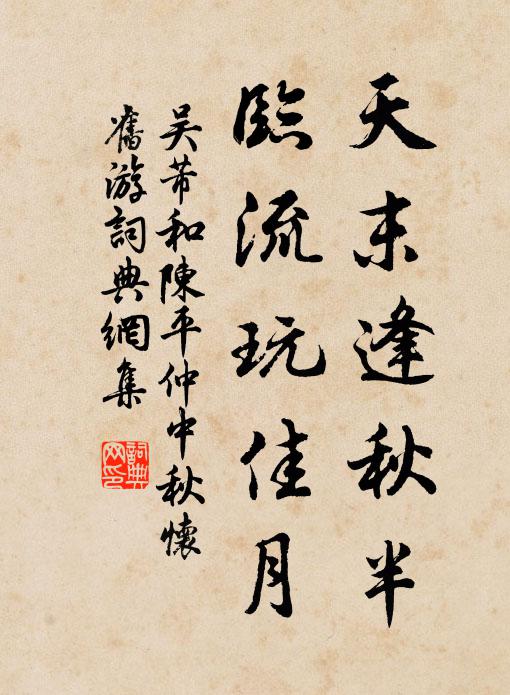 天末逢秋半
臨流玩佳月
吴芾和陳平仲中秋懷
舊游詞典網集
詞典网印